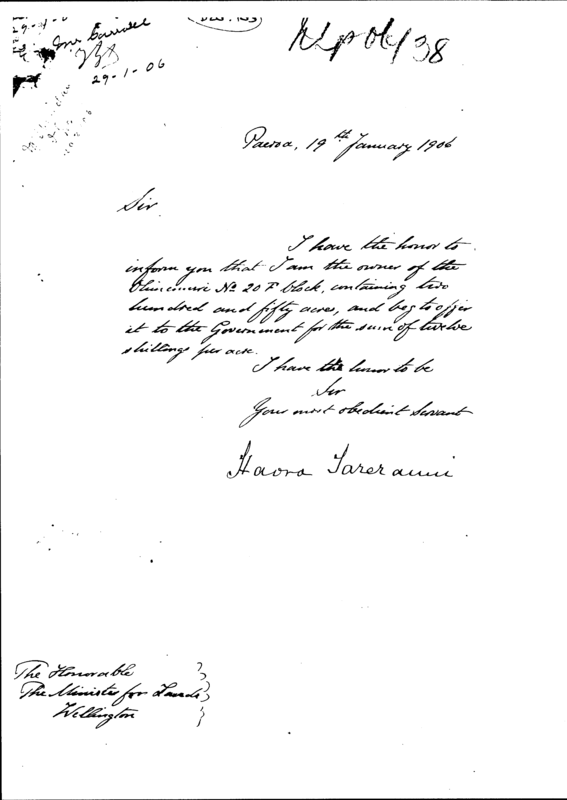 29-1-06
29-1-06
NLP 06/38
Paeroa, 19th January 1906
Sir
I have the honor to
inform you that I am the owner of the
Ohinemuri No 20 F block, containing two
hundred and fifty acres, and beg to offer
it to the Government for the sum of twelve
shillings per acre.
I have the honor to be
Sir
Your most obedient Servant
Haora Tareranui
The Honorable
The Minister for Lands
Wellington